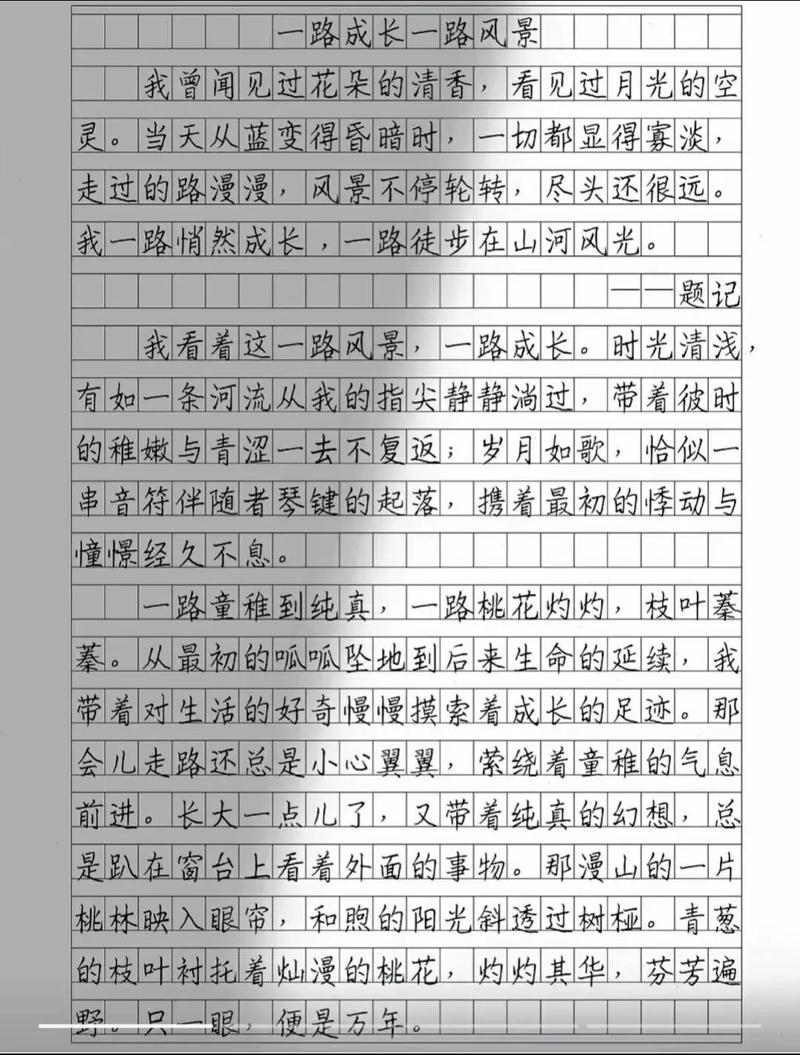 一路成长一路风景
我曾闻见过花朵的清香，看见过月光的空
灵。当天从蓝变得昏暗时，一切都显得寡淡，
走过的路漫漫，风景不停轮转，尽头还很远。
我一路悄然成长，一路徒步在山河风光。
——题记
我看着这一路风景，一路成长。时光清浅，
有如一条河流从我的指尖静静淌过，带着彼时
的稚嫩与青涩一去不复返；岁月如歌，恰似一
串音符伴随者琴键的起落，携着最初的悸动与
憧憬经久不息。
一路童稚到纯真，一路桃花灼灼，枝叶蓁
蓁。从最初的呱呱坠地到后来生命的延续，我
带着对生活的好奇慢慢摸索着成长的足迹。那
会儿走路还总是小心翼翼，萦绕着童稚的气息
前进。长大一点儿了，又带着纯真的幻想，总
是趴在窗台上看着外面的事物。那漫山的一片
桃林映入眼帘，和煦的阳光斜透过树桠。青葱
的枝叶衬托着灿漫的桃花，灼灼其华，芬芳遍
野。只一眼，便是万年。